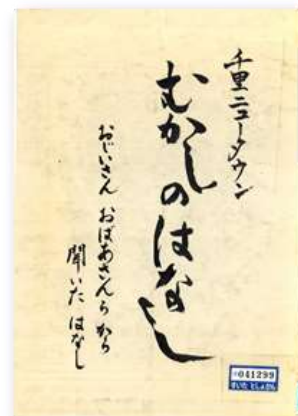 千里ニュータウン
むかしのはなし
おじいさん おばあさんらから
聞いた はなし
041299
すいた としょかん